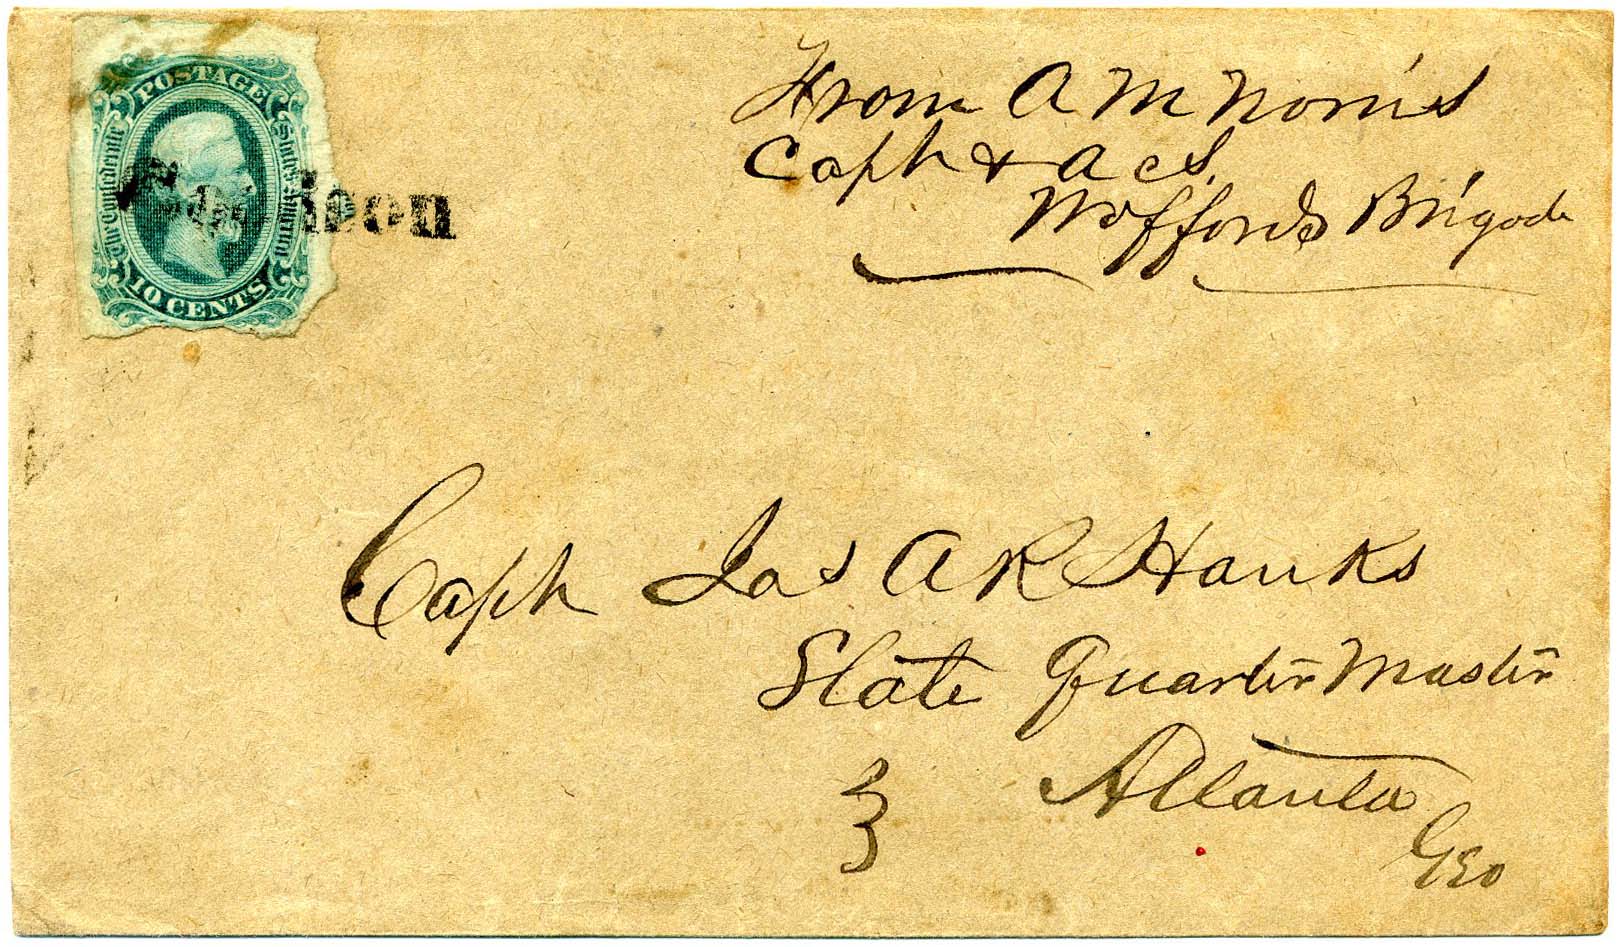 POSTAGE
The Confederate States of America
10 CENTS
From A M Norris
Capt & A C S
Woffords Brigade
Capt Jas A R Hanks
State Quarter Master
Atlanta
Geo